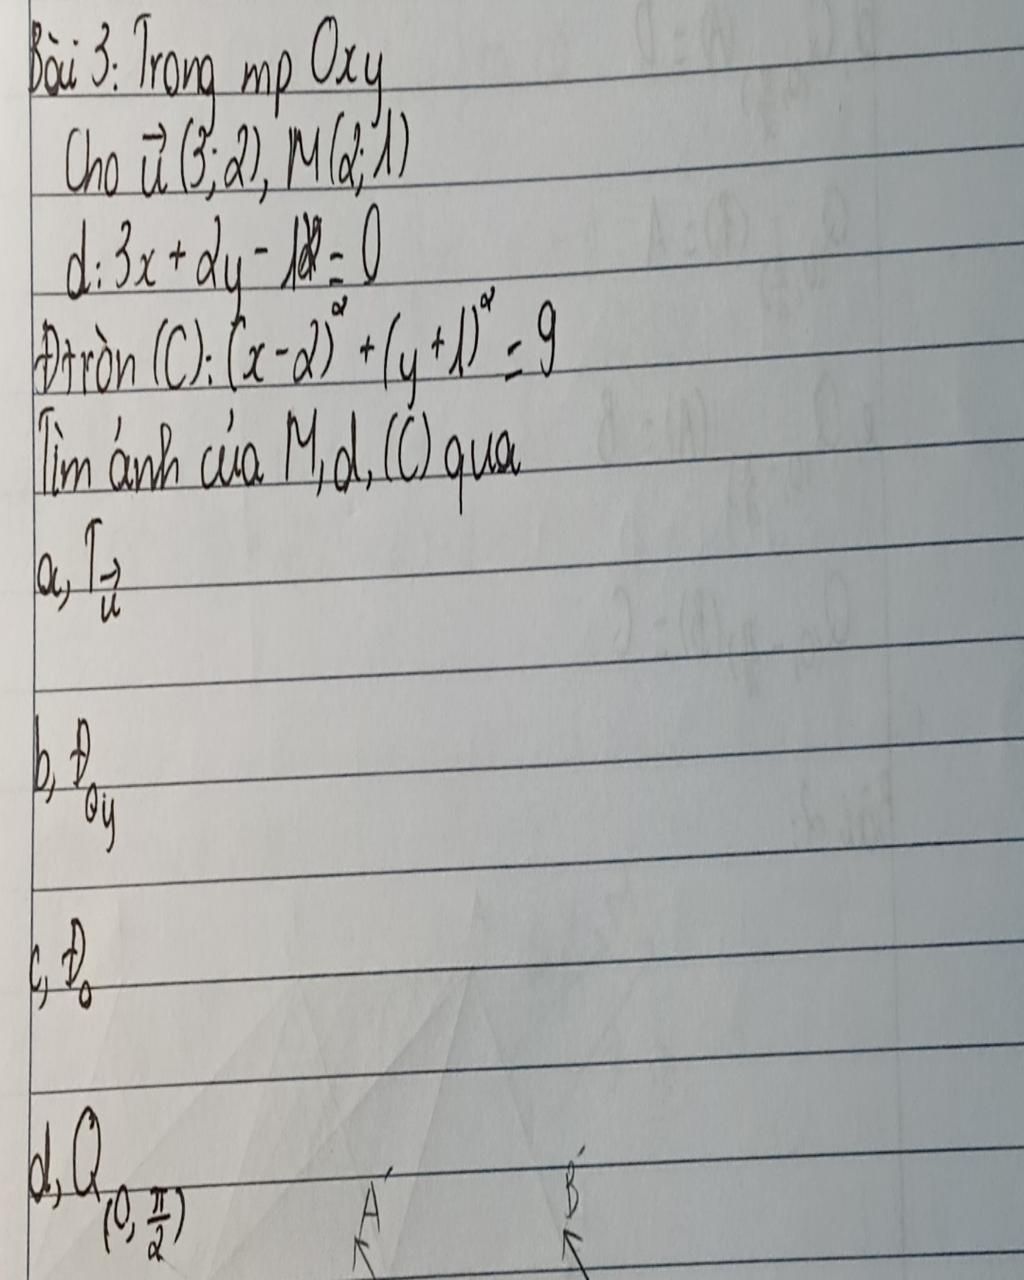 Bài 3: Trong mp Oxy
Cho u⃗ (3;2), M(2;1)
d: 3x + 2y - 12 = 0
Đtròn (C): (x-2)² + (y+1)² = 9
Tìm ảnh của M, d, (C) qua
a, T_u⃗
b, Đ_Oy
c, Đ_O
d, Q_(O, π/2) A' B'